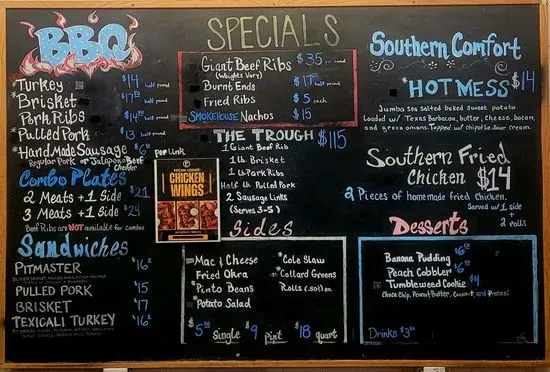 BBQ
Turkey $14 half pound
*Brisket $17.00 half pound
Pork Ribs half pound
*Pulled Pork $13 half pound
*Hand Made Sausage
Regular Pork or Jalapeno Beef Cheddar
per link
Combo Plates
2 Meats + 1 Side $21
3 Meats + 1 Side $24
Beef Ribs are NOT available for combos
Sandwiches
PITMASTER
PULLED PORK $15
BRISKET $17
TEXICALI TURKEY
SPECIALS
Giant Beef Ribs $35 per pound
(Weights Vary)
Burnt Ends half pound
Fried Ribs $5 each
SMOKEHOUSE Nachos $15
THE TROUGH $115
1 Giant Beef Rib
1 lb Brisket
1 lb Pork Ribs
Half lb Pulled Pork
2 Sausage Links
(Serves 3-5)
PECAN LODGE
CHICKEN
WINGS
Sides
Mac & Cheese
Fried Okra
*Pinto Beans
*Potato Salad
*Cole Slaw
*Collard Greens
Rolls (.50) ea.
single $9 pint 18 quart
Southern Comfort
*HOT MESS $14
Jumbo sea salted baked sweet potato
loaded w/ Texas Barbacoa, butter, cheese, bacon,
and green onions. Topped w/ chipotle sour cream.
Southern Fried
Chicken $14
2 Pieces of homemade fried chicken.
Served w/ 1 side
+
2 rolls
Desserts
Banana Pudding
Peach Cobbler
Tumbleweed Cookie $4
Choco Chip, Peanut Butter, Coconut, and Pretzel
Drinks